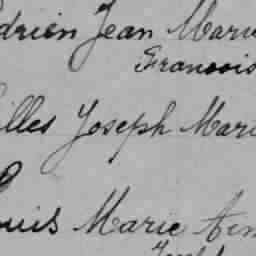 drien Jean Marie
Francois
illes Joseph Mari
ouis Marie